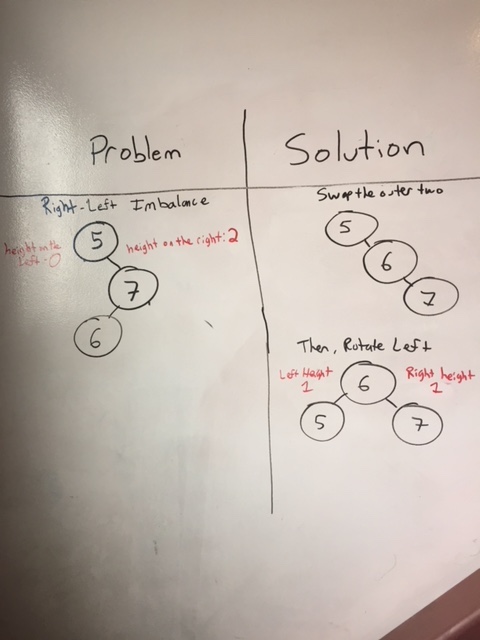 Problem
Solution
Right-Left Imbalance
height on the
left:0
5
height on the right:2
7
6
Swap the outer two
5
6
7
Then, Rotate Left
Left Height
1
6
Right height
1
5
7